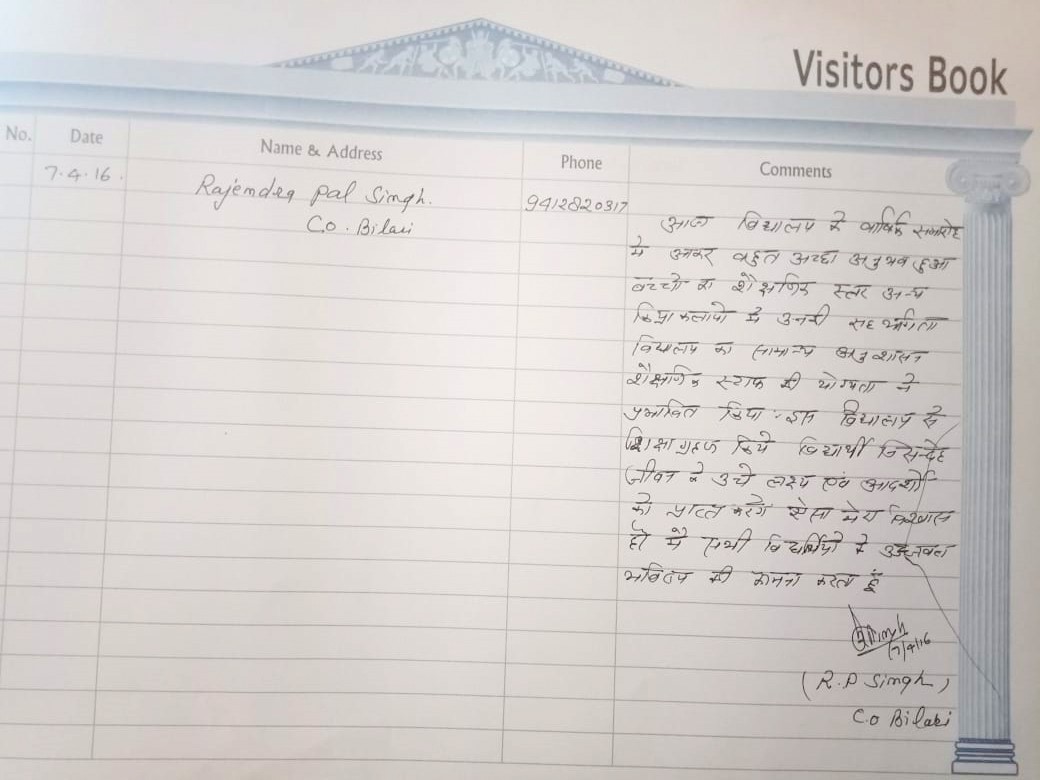 Visitors Book
No. Date Name & Address Phone Comments
7.4.16.
Rajendra Pal Singh. 9412820317
C.O. Bilari
आज विद्यालय के वार्षिक समारोह
मे आकर बहुत अच्छा अनुभव हुआ
बच्चो का शैक्षणिक स्तर अन्य
क्रिया कलापो मे उनकी सहभागिता
विद्यालय का सामान्य अनुशासन
शैक्षणिक स्टाफ की योग्यता ने
प्रभावित किया। इस विद्यालय से
शिक्षा ग्रहण किये विद्यार्थी निसन्देह
जीवन के उचे लक्ष्य एवं आदर्शो
को प्राप्त करेगे ऐसा मेरा विश्वास
है। मै सभी विद्यार्थियो के उज्जवल
भविष्य की कामना करता हूँ
7/4/16
(R.P Singh)
C.O Bilari